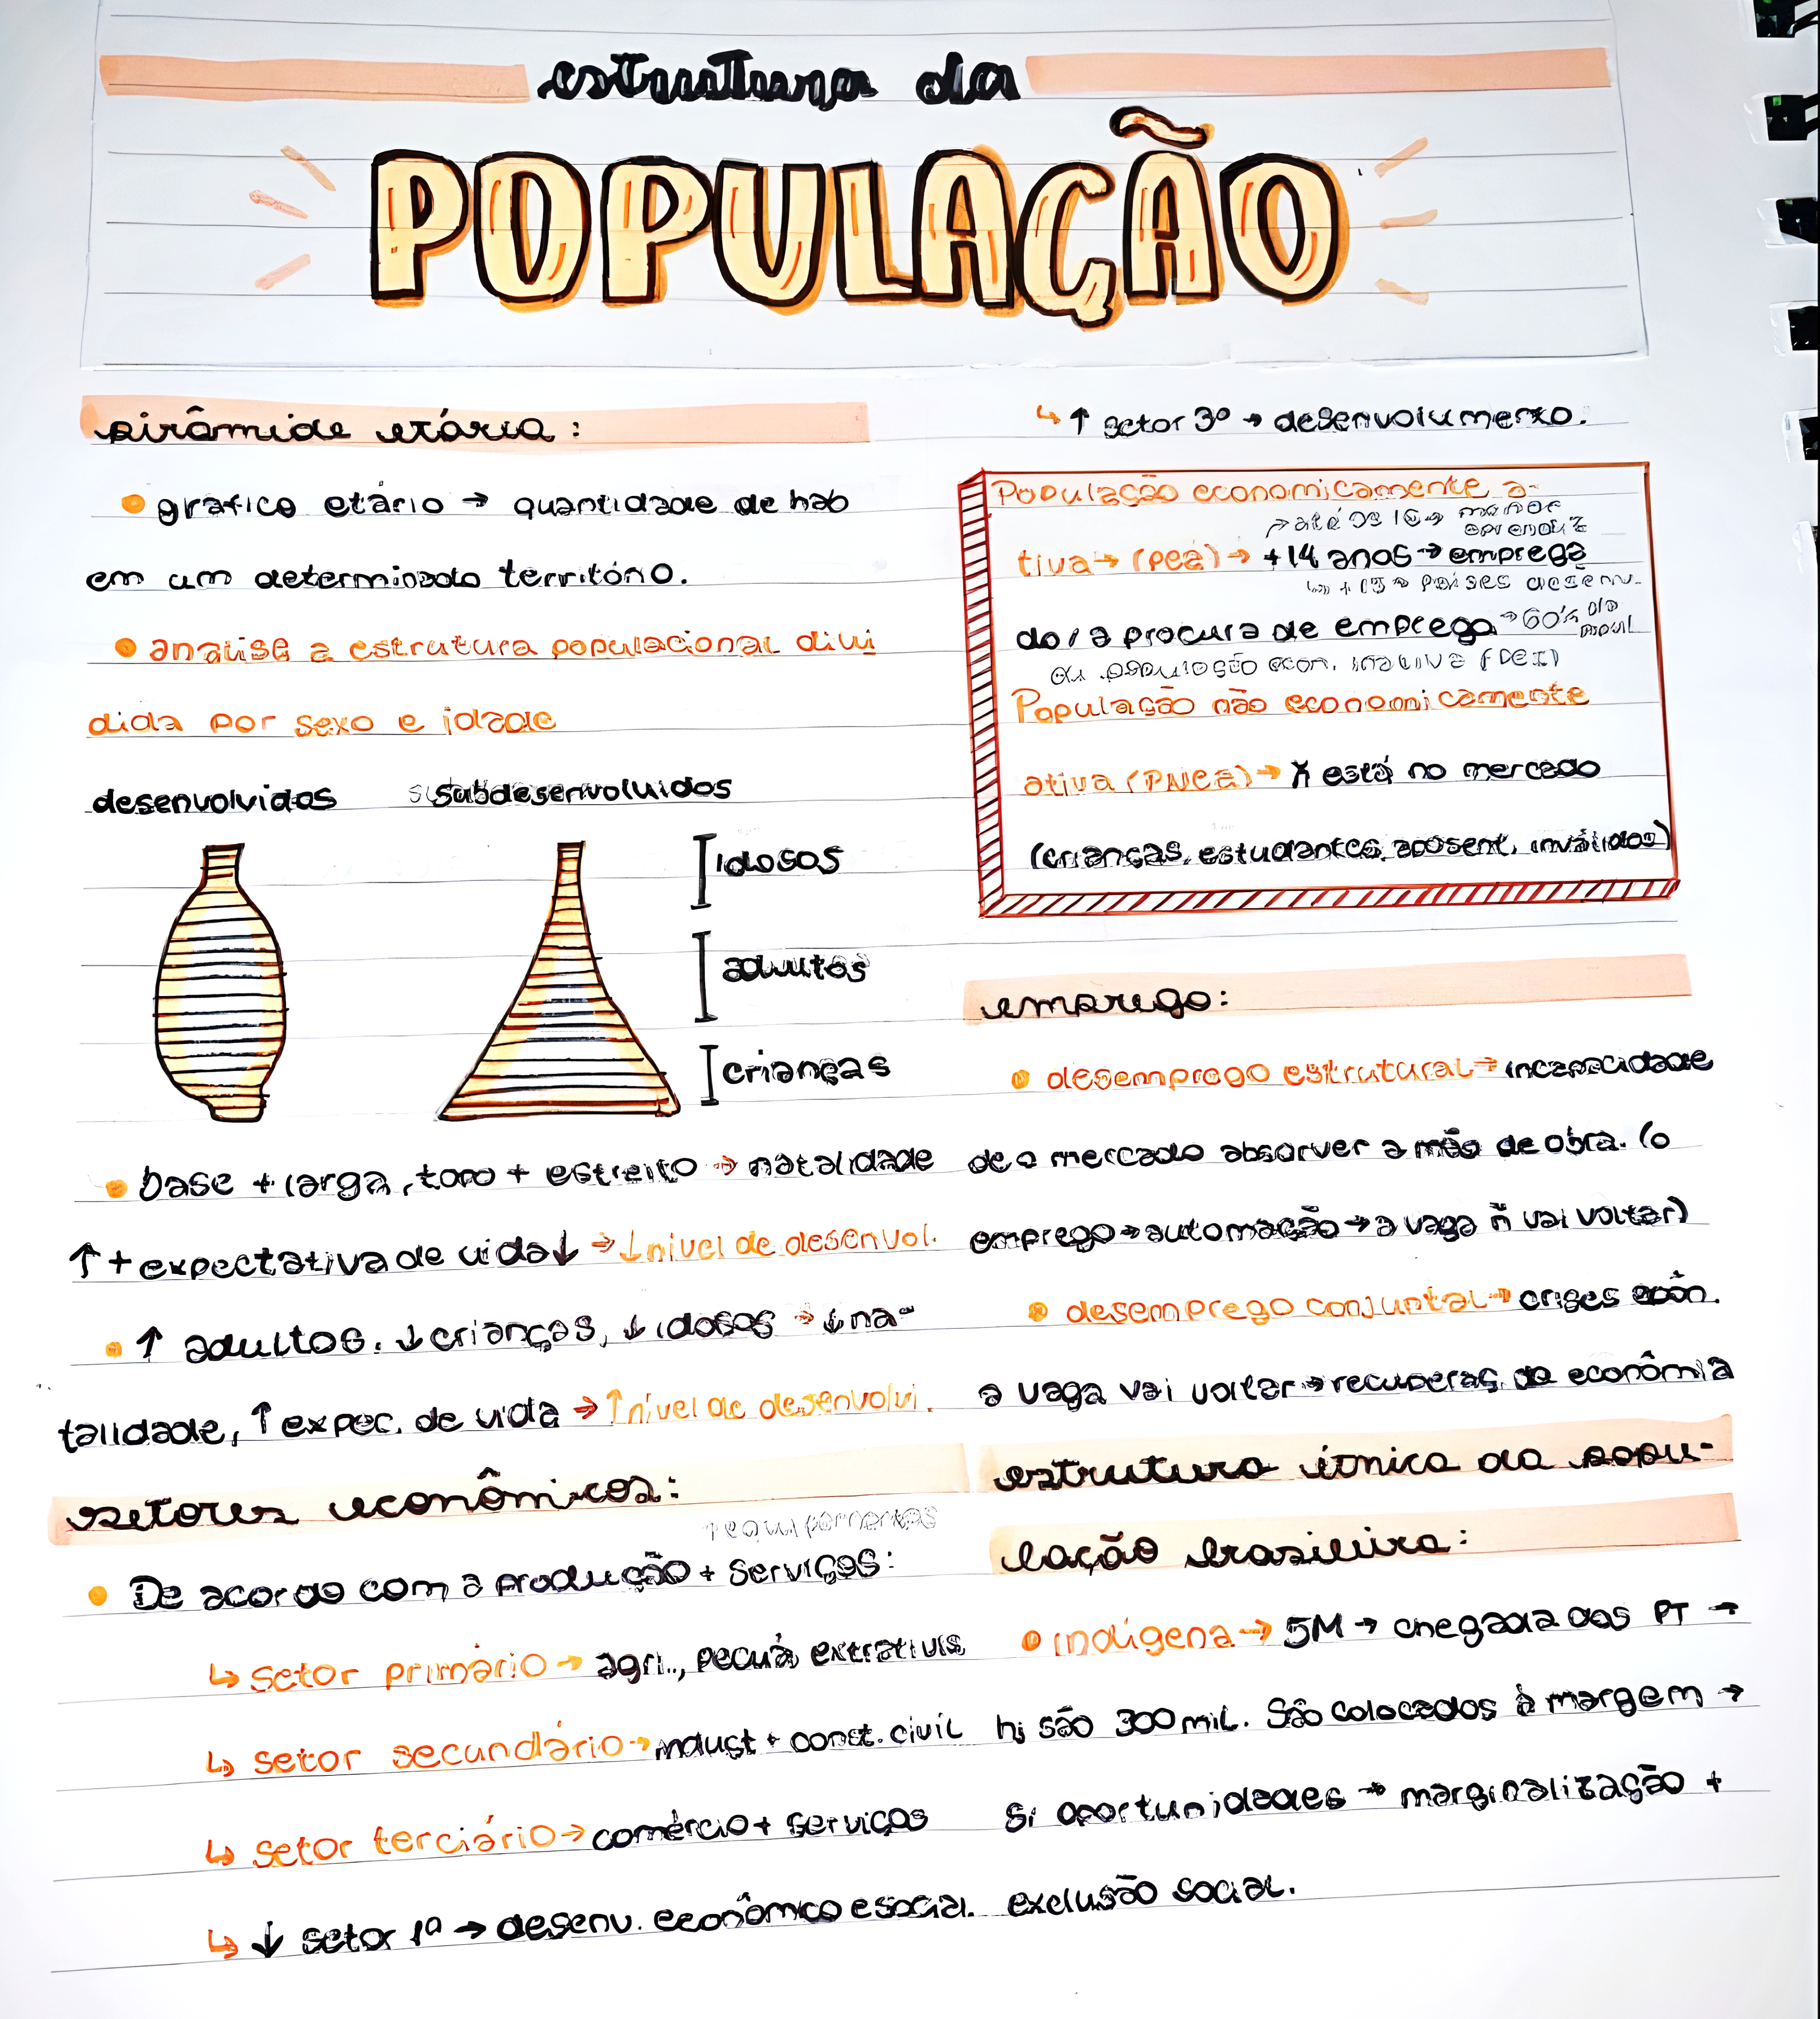 estrutura da
POPULAÇÃO
pirâmide etária:
• gráfico etário → quantidade de hab
em um determinado território.
• analisa a estrutura populacional divi
dida por sexo e idade
desenvolvidos subdesenvolvidos
idosos
adultos
crianças
• base + larga, topo + estreito → natalidade
↑ + expectativa de vida ↓ → ↓ nível de desenvol.
• ↑ adultos, ↓ crianças, ↓ idosos → ↓ na-
talidade, ↑ expec. de vida → ↑ nível de desenvolvi.
setores econômicos:
• De acordo com a produção + serviços:
↳ setor primário → agri., pecuá, extrativis
↳ setor secundário → indust + const. civil
↳ setor terciário → comércio + serviços
↳ ↓ setor 1º → desenv. econômico e social.
↳ ↑ setor 3º → desenvolvimento.
População economicamente a-
→ até os 16 → menor aprendiz
tiva → (PEA) → +14 anos → emprega
↳ +15 → países desenv.
do / a procura de emprego → 60% da popul
ou população econ. inativa (PEI)
População não economicamente
ativa (PNEA) → ñ está no mercado
(crianças, estudantes, aposent, inválidos)
emprego:
• desemprego estrutural → incapacidade
de o mercado absorver a mão de obra. (o
emprego → automação → a vaga ñ vai voltar)
• desemprego conjuntal → crises econ.
a vaga vai voltar → recuperaç. da econômia
estrutura étnica da popu-
lação brasileira:
• indígena → 5M → chegada dos PT →
hj são 300 mil. São colocados à margem →
s/ oportunidades → marginalização +
exclusão social.